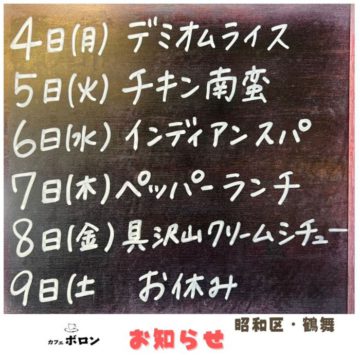 4日(月) デミオムライス
5日(火) チキン南蛮
6日(水) インディアンスパ
7日(木) ペッパーランチ
8日(金) 具沢山クリームシチュー
9日(土 お休み
昭和区・鶴舞
カフェ ボロン
お知らせ